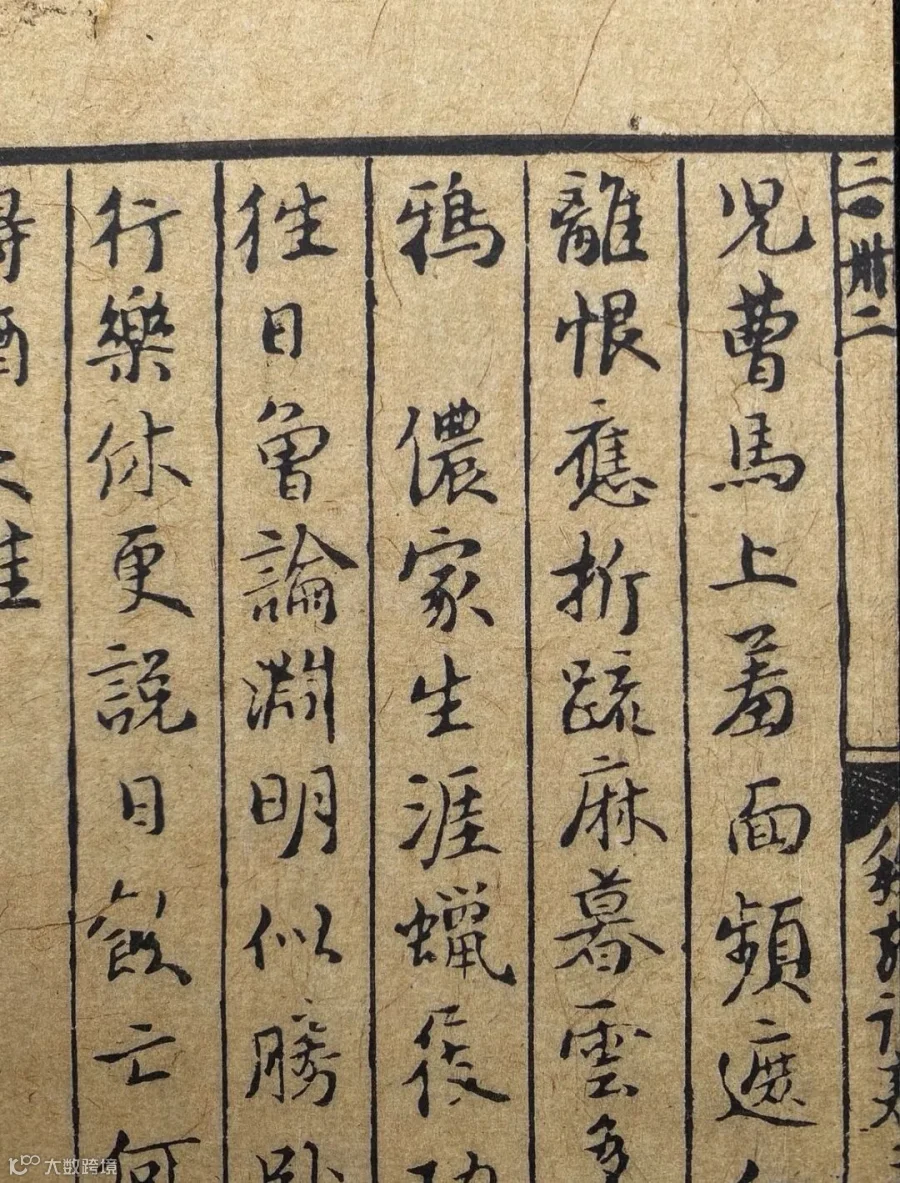 二●卅二
兒曹馬上羞面頻遮
離恨應折䟽麻暮雲多
鴉　儂家生涯蠟屐功
往日曾論淵明似勝卧
行樂休更說日飲亡何
大数跨境